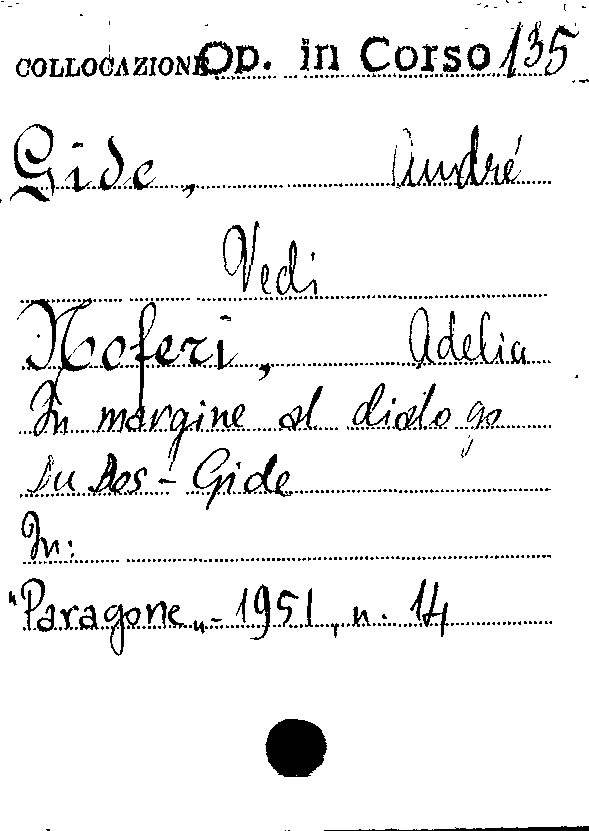 COLLOCAZIONE Op. in Corso 135
Gide, André
Vedi
Noferi, Adelia
In margine al dialogo
Du Bos - Gide
In:
"Paragone„ - 1951, n. 14